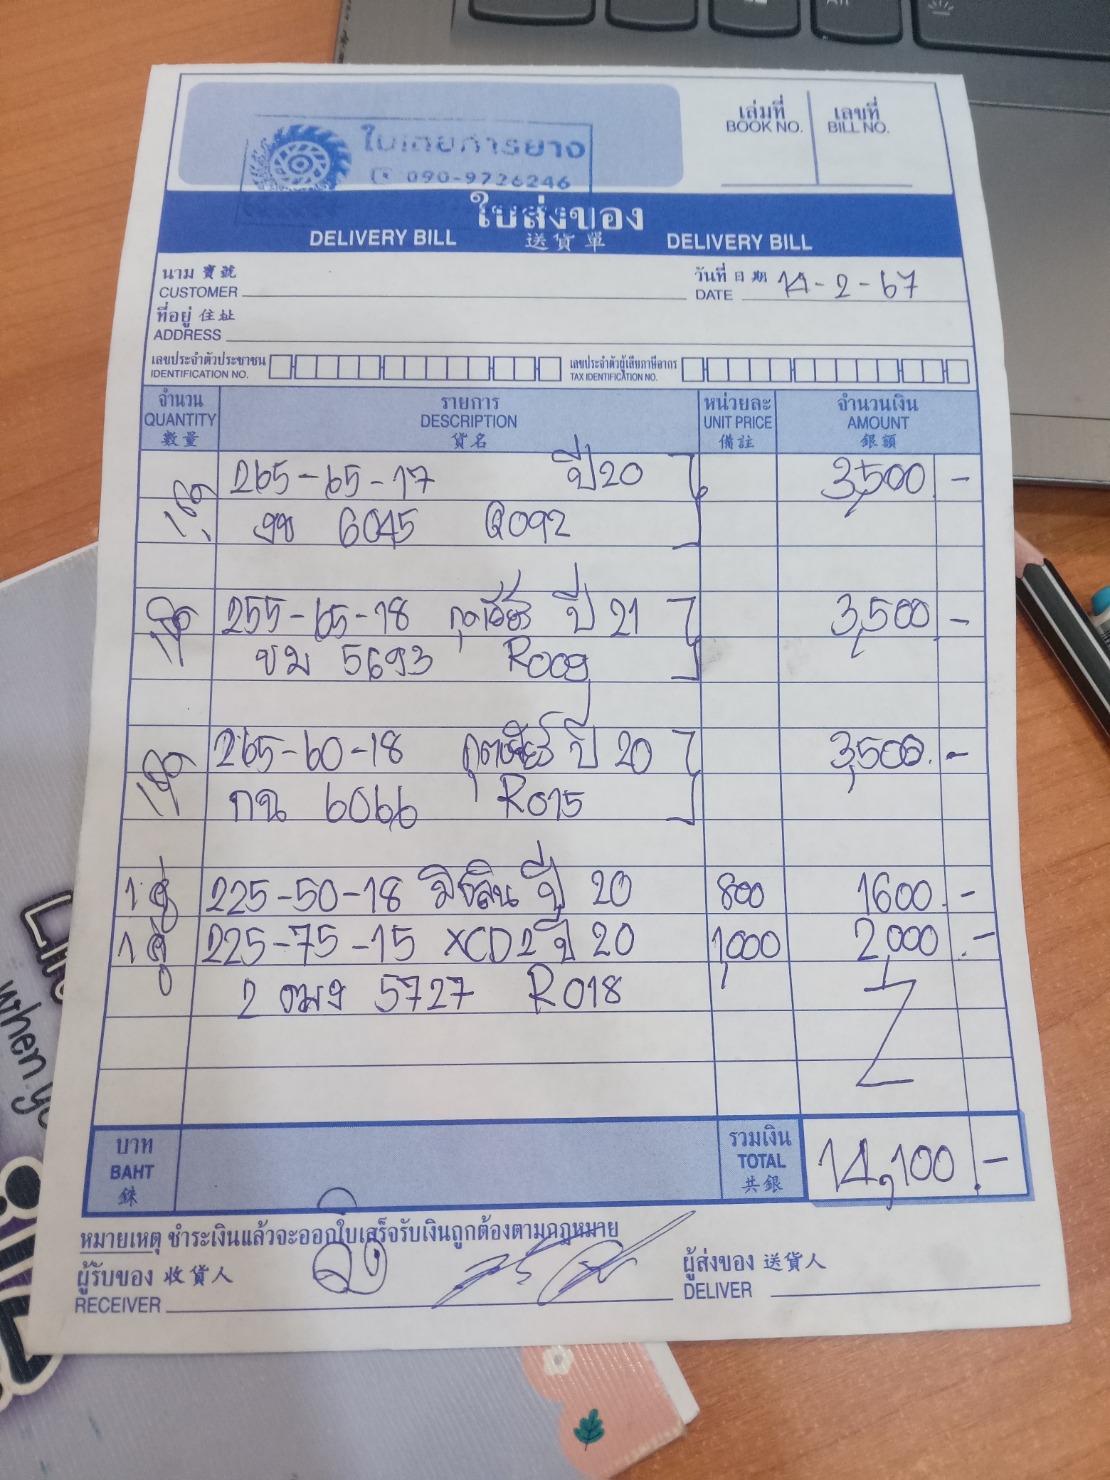 ใบเตยการยาง
090-9726246
เล่มที่
BOOK NO.
เลขที่
BILL NO.
ใบส่งของ
DELIVERY BILL 送貨單 DELIVERY BILL
นาม 寶號
CUSTOMER
วันที่ 日期
DATE 14-2-67
ที่อยู่ 住址
ADDRESS
เลขประจำตัวประชาชน
IDENTIFICATION NO.
เลขประจำตัวผู้เสียภาษีอากร
TAX IDENTIFICATION NO.
จำนวน รายการ หน่วยละ จำนวนเงิน
QUANTITY DESCRIPTION UNIT PRICE AMOUNT
數量 貨名 備註 銀額
265-65-17 ปี 20 3,500 -
6045 Q092
255-65-18 ปี 21 3,500 -
ขม 5693 R009
265-60-18 ปี 20 3,500.-
กฉ 6066 R015
1 คู่ 225-50-18 มิชลิน ปี 20 800 1600.-
1 คู่ 225-75-15 XCD2 ปี 20 1,000 2,000.-
2 ฒฆ 5727 R018
บาท
BAHT
銖
รวมเงิน
TOTAL
共銀
14,100.-
หมายเหตุ ชำระเงินแล้วจะออกใบเสร็จรับเงินถูกต้องตามกฎหมาย
ผู้รับของ 收貨人
RECEIVER
ผู้ส่งของ 送貨人
DELIVER
when